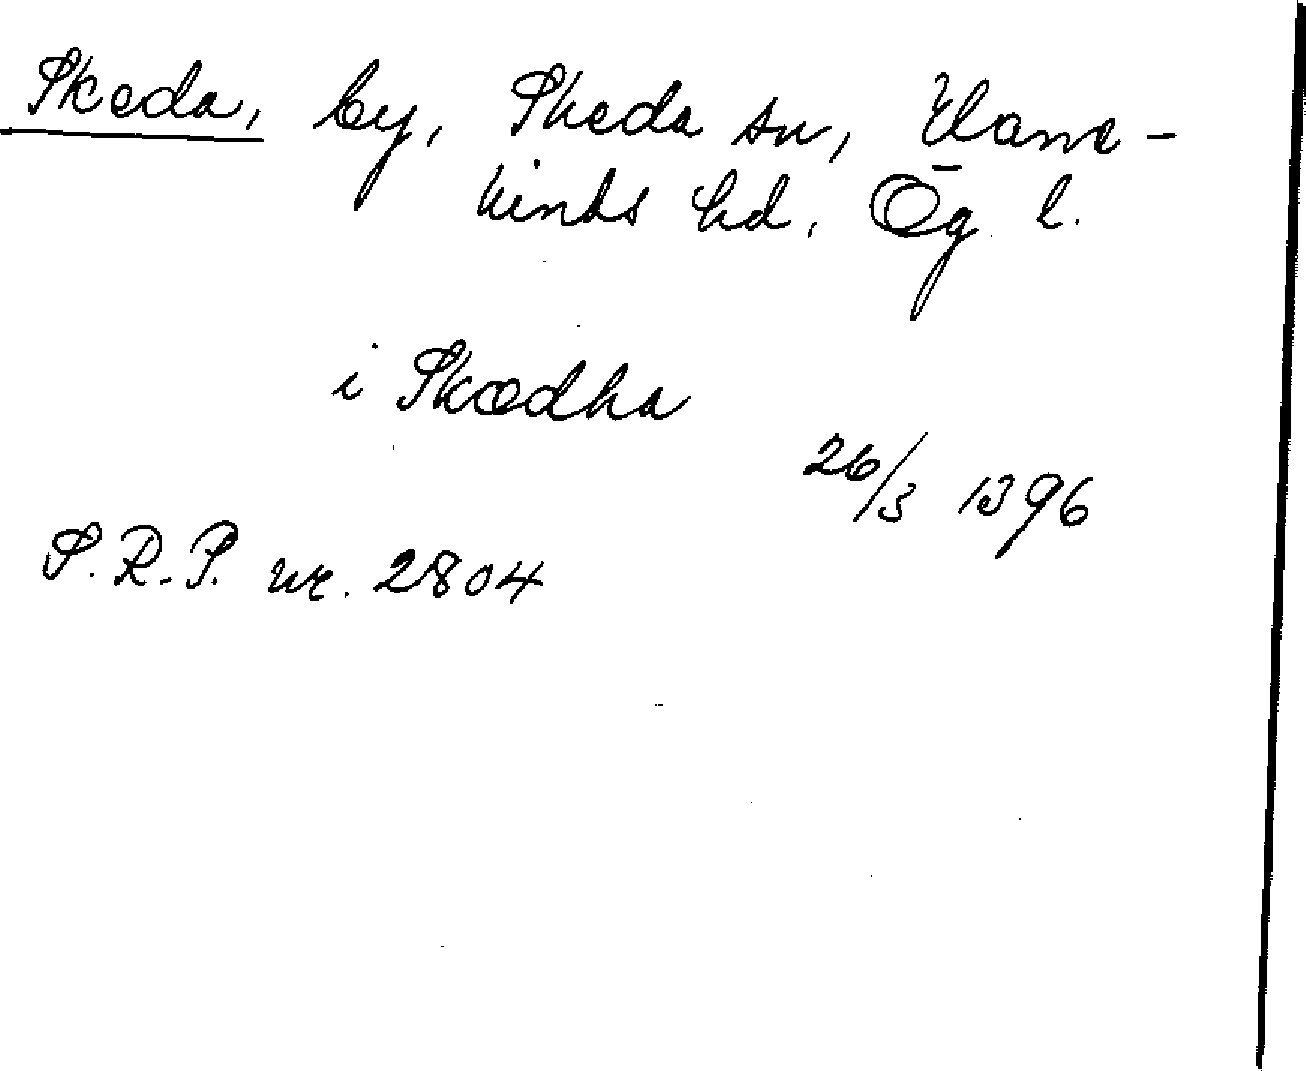 Skeda, by, Skeda sn, Hane-
kinds hd, Ög l.
i Skædha
26/3 1396
S.R.P. nr. 2804